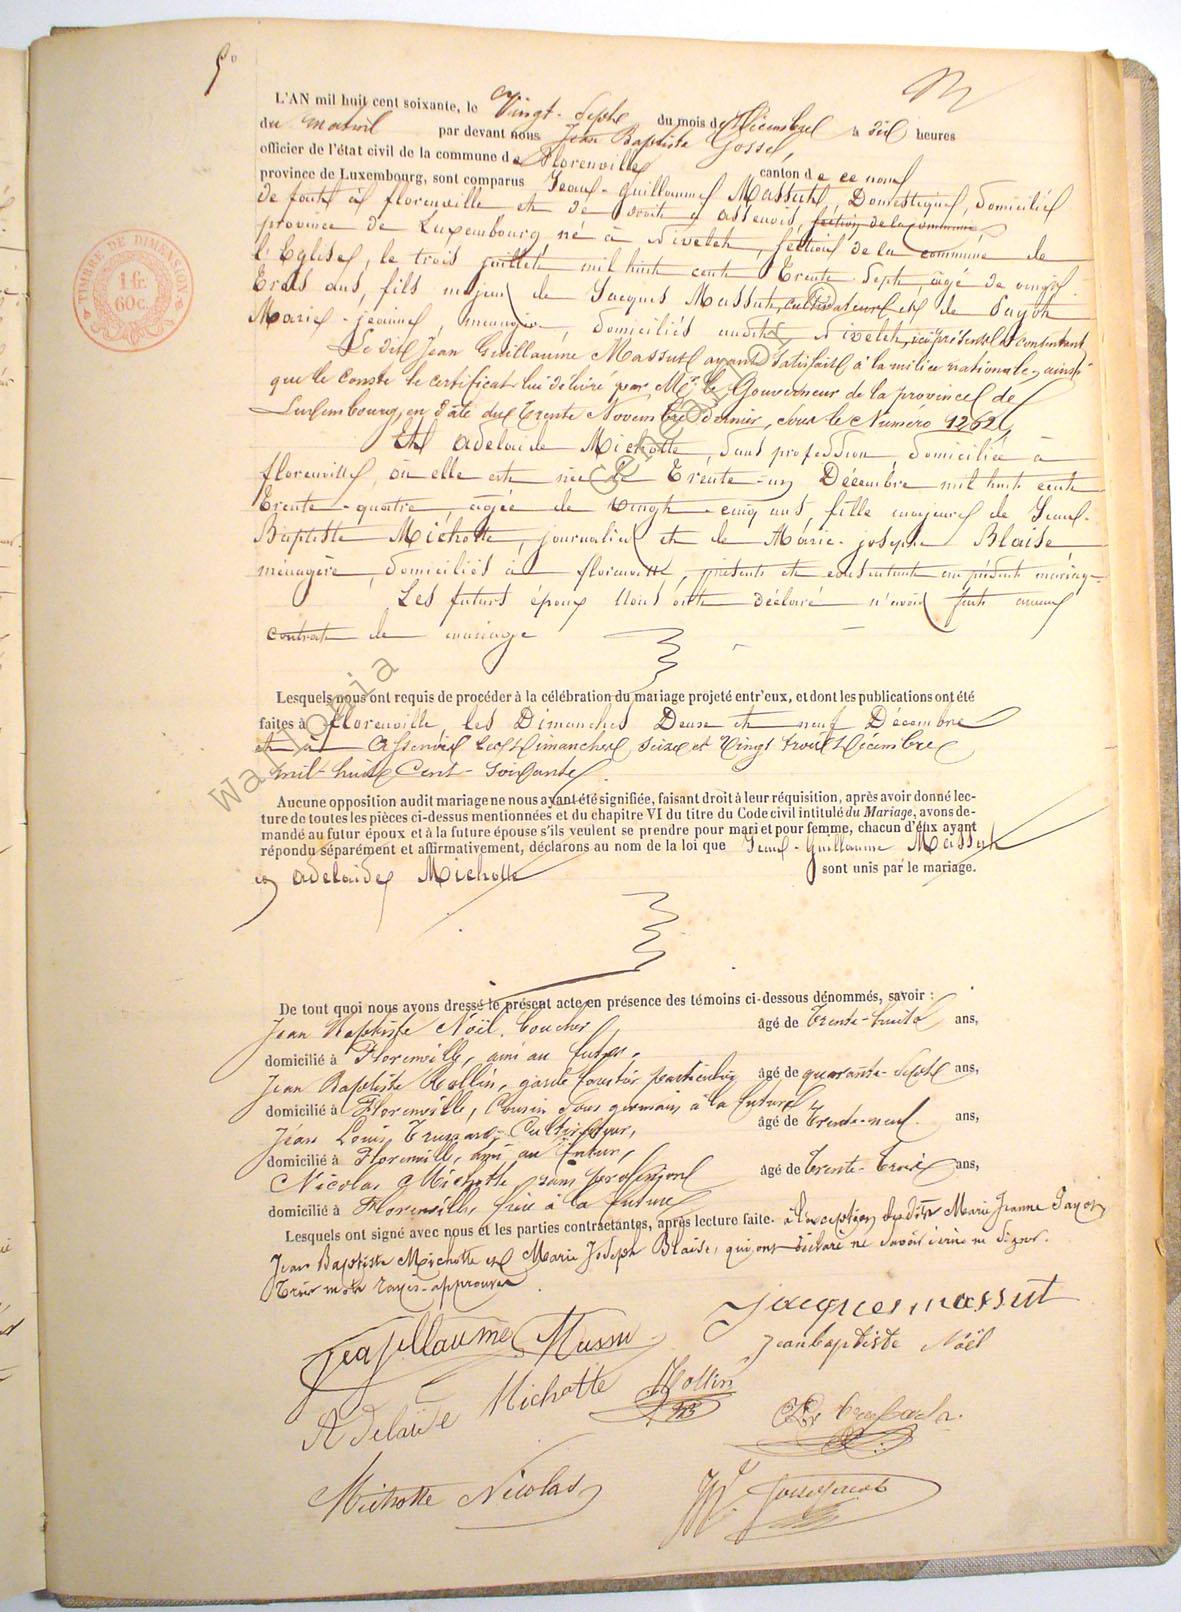 5°
L'AN mil huit cent soixante, le Vingt-Sept du mois de Décembre à dix heures
du matin par devant nous Jean Baptiste Gosse,
officier de l'état civil de la commune de Florenville
province de Luxembourg, sont comparus canton de ce nom
Jean-Guillaume Massut, Domestique, domicilié
de fait à florenville et de droit à assenois, section de la commune
province de Luxembourg, né à Nivelet, section de la commune de
l'Eglise, le trois juillet mil huit cent Trente-Sept, âgé de vingt
Trois ans, fils majeur de Jacques Massut, cultivateur et de Payon
Marie-jeanne, ménagère, domiciliés audit Nivelet, ici présents et consentant
Le dit Jean Guillaume Massut ayant satisfait à la milice nationale, ainsi
que le conste le certificat lui délivré par Mr. le Gouverneur de la province de
Luxembourg, en date du Trente Novembre dernier, sous le Numéro 1262
Et adelaide Michotte, sans profession, domiciliée à
florenville, où elle est née le Trente-un Décembre mil huit cent
Trente-quatre, agée de vingt-cinq ans, fille majeure de Jean-
Baptiste Michotte, journalier et de Marie-josephe Blaise
ménagère, domiciliés à florenville, présents et consentant au présent mariage
Les futurs époux Nous ont déclaré n'avoir fait aucun
contrat de mariage
Lesquels nous ont requis de procéder à la célébration du mariage projeté entr'eux, et dont les publications ont été
faites à florenville, les Dimanches Deux et neuf Décembre
et à Assenois les Dimanches seize et Vingt trois Décembre
mil-huit Cent-soixante
Aucune opposition audit mariage ne nous ayant été signifiée, faisant droit à leur réquisition, après avoir donné lec-
ture de toutes les pièces ci-dessus mentionnées et du chapitre VI du titre du Code civil intitulé du Mariage, avons de-
mandé au futur époux et à la future épouse s'ils veulent se prendre pour mari et pour femme, chacun d'eux ayant
répondu séparément et affirmativement, déclarons au nom de la loi que Jean-Guillaume Massut
et adelaide Michotte sont unis par le mariage.
De tout quoi nous avons dressé le présent acte en présence des témoins ci-dessous dénommés, savoir :
Jean Baptiste Noël, boucher, âgé de Trente-huit ans,
domicilié à Florenville, ami au futur.
Jean Baptiste Rollin, garde forestier particulier âgé de quarante-sept ans,
domicilié à Florenville, Cousin sous germain à la future,
Jean Louis, Cultivateur, âgé de Trente-neuf ans,
domicilié à Florenville, ami au futur,
Nicolas Michotte, sans profession âgé de Trente-Trois ans,
domicilié à Florenville, frère à la future
Lesquels ont signé avec nous et les parties contractantes, après lecture faite. à l'exception desdits Marie Jeanne Payon
Jean Baptiste Michotte et Marie Joseph Blaise, qui ont déclaré ne savoir écrire ni signer.
Trois mots rayés-approuvés
Jacques massut
Massu
jeanbaptiste Noël
Adelaïde Michotte Rollin
Michotte Nicolas
TIMBRE DE DIMENSION
1 fr.
60 c.
Wallonia